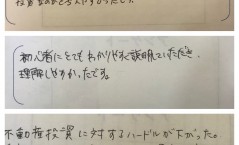 初心者にとてもわかりやすく説明していただき、
理解しやすかったです。
不動産投資に対するハードルが下がった。